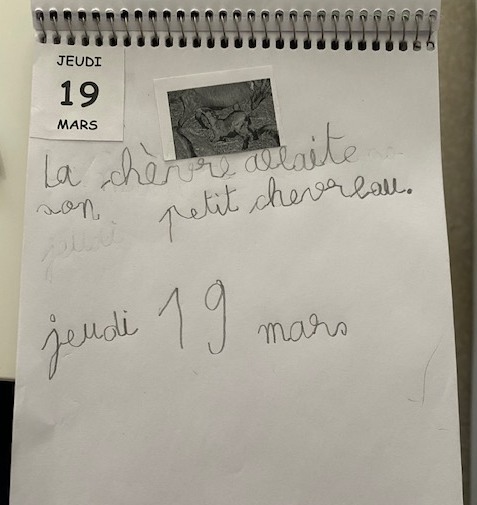 JEUDI
19
MARS
La chèvre allaite
son petit chevreau.
jeudi
jeudi 19 mars